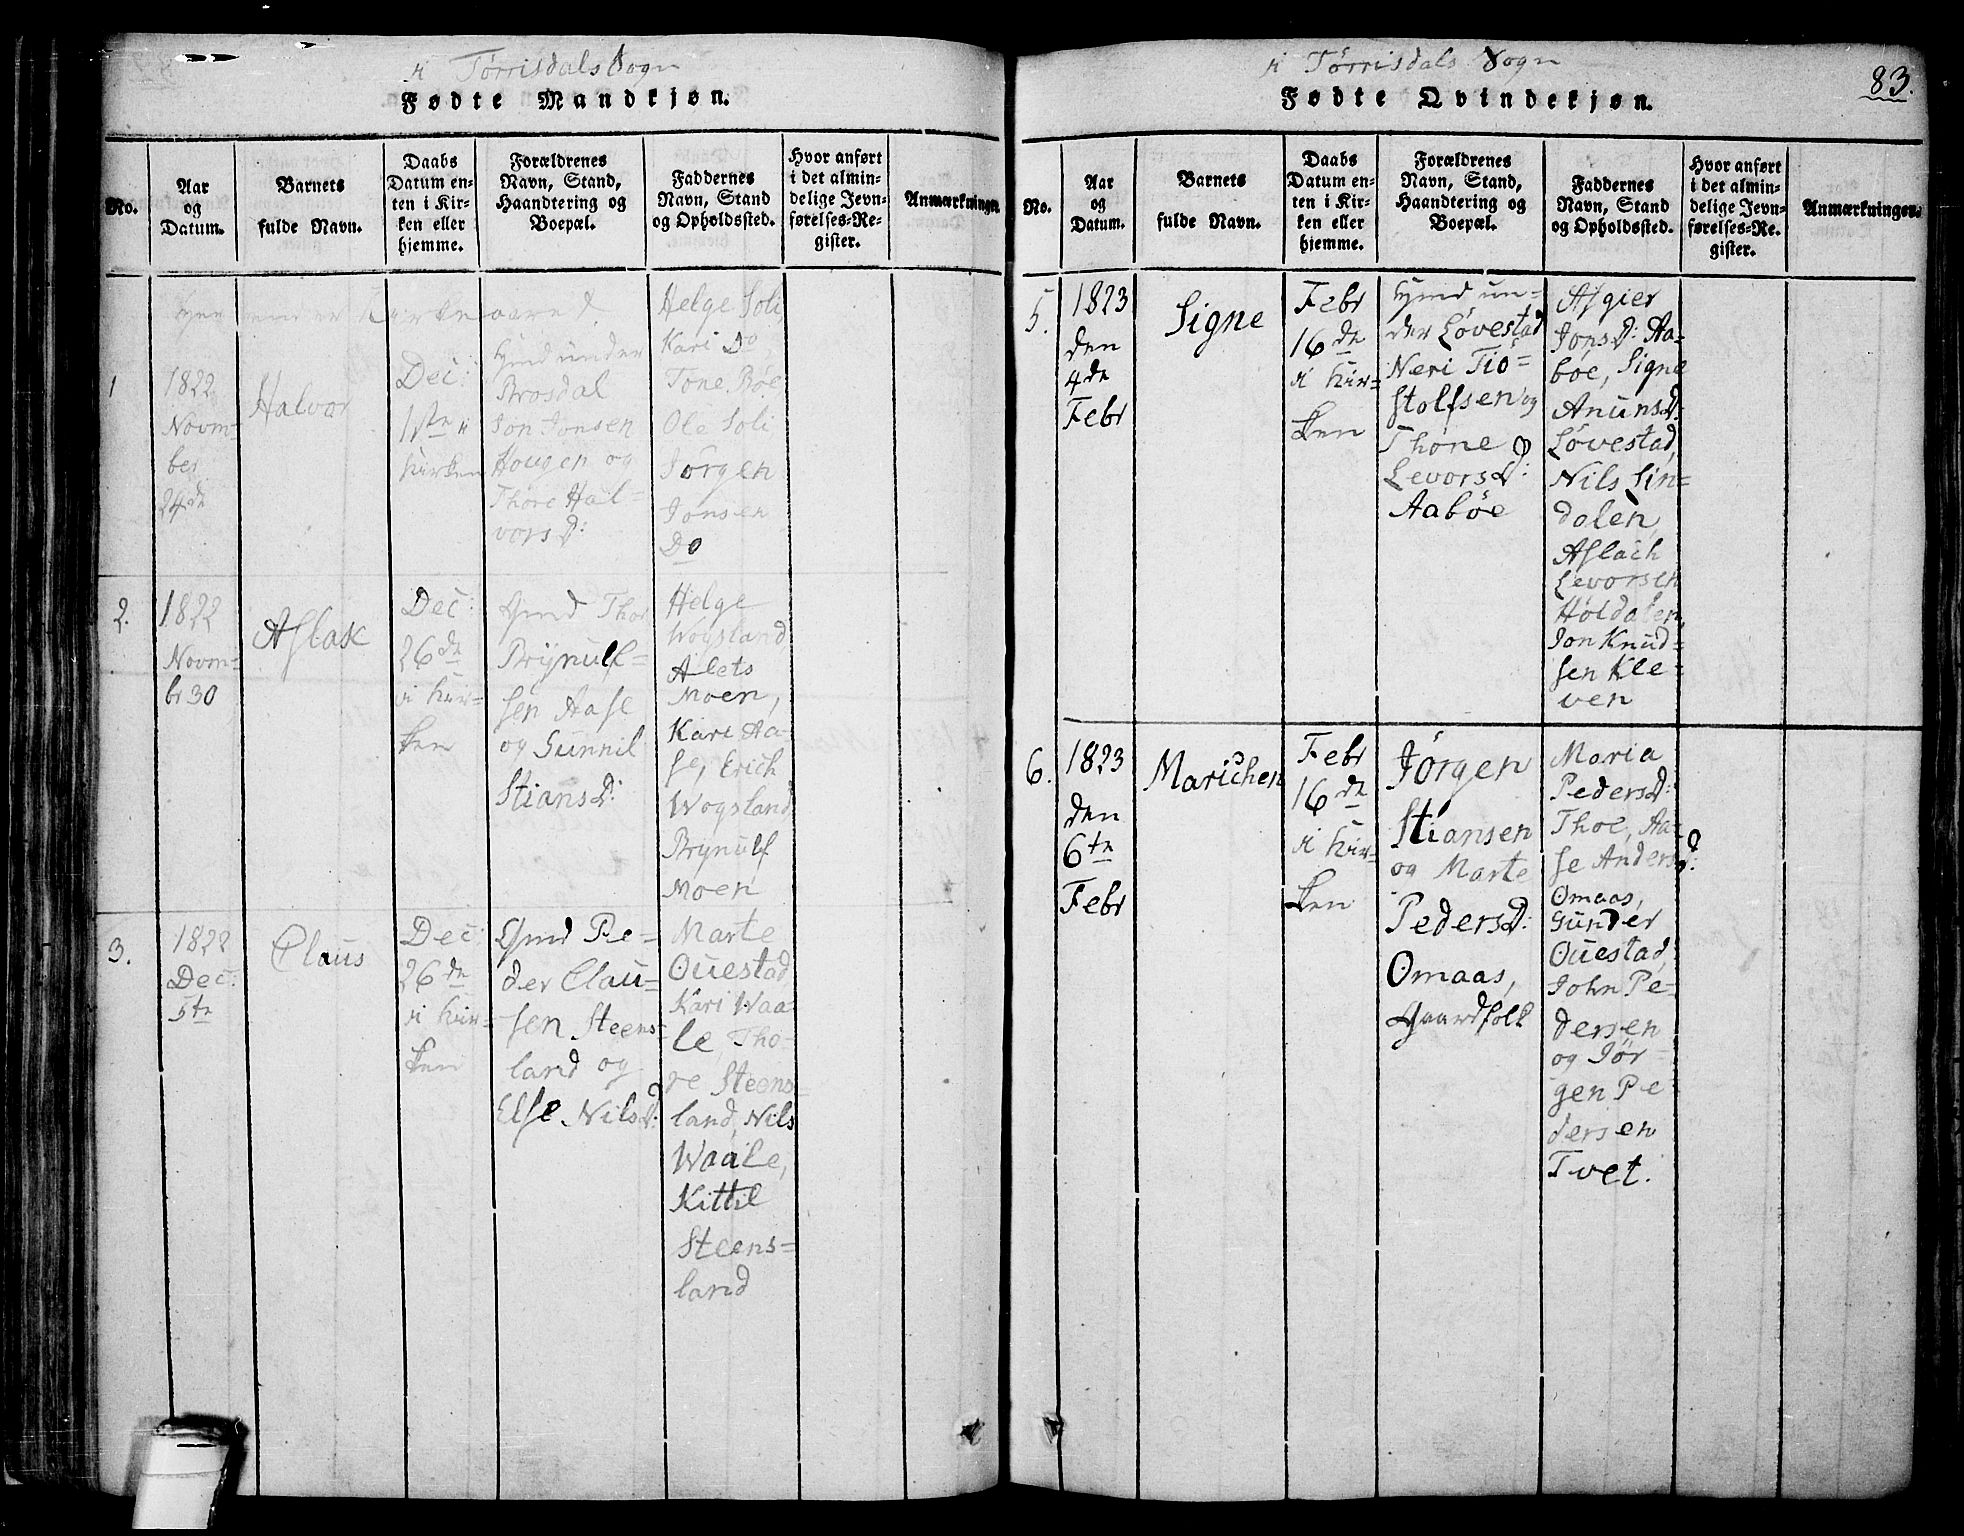 i Tørrisdals Sogn
Fødte Mandkjøn.
No.
Aar
og
Datum.
Barnets
fulde Navn.
Daabs
Datum en-
ten i Kir-
ken eller
hjemme.
Forældrenes
Navn, Stand,
Haandtering og
Boepæl.
Faddernes
Navn, Stand
og Opholdssted.
Hvor anført
i det almin-
delige Jevn-
førelses-Re-
gister.
Anmærkninger.
1
1822
Novm-
ber
24de
Halvor
Dec:
1ste i
Kirken
under
Brosdal
Jon Jonsen
Hougen og
Thore Hal-
vorsD:
Helge Soli,
Kari Do,
Tone Bøe
Ole Soli
Jørgen
Jonsen
Do
2.
1822
Novm-
br 30
Aslak
Dec:
26de
i Kir-
ken
Gmd Thor
Brynulf-
sen Aase
og Gunnil
StiansD:
Helge
Wogsland
Alets
Moen,
Kari Aa-
se, Erich
Wogsland
Brynulf
Moen
3.
1822
Dec:
5te
Claus
Dec:
26de
i Kir-
ken
Gmd Pe-
der Clau-
sen Steens-
land og
Else NilsD:
Marte
Ouestad
Kari Waa-
le, Tho-
re Steens-
land, Nils
Waale,
Kittil
Steens-
land
i Tørrisdals Sogn
83.
Fødte Qvindekjøn.
No.
Aar
og
Datum.
Barnets
fulde Navn.
Daabs
Datum en-
ten i Kir-
ken eller
hjemme.
Forældrenes
Navn, Stand,
Haandtering og
Boepæl.
Faddernes
Navn, Stand
og Opholdssted.
Hvor anført
i det almin-
delige Jevn-
førelses-Re-
gister.
Anmærkninger.
5.
1823
den
4de
Febr
Signe
Febr
16de
i Kir-
ken
un-
der Løvestad
Neri Tiø-
stolfsen og
Thone
LevorsD:
Aabøe
Asgier
JonsD: Aa-
bøe, Signe
AnunsD:
Løvestad,
Nils Lin-
dalen,
Aslach
Levorsen
Høldalen,
Jon Knud-
sen Kle-
ven
6.
1823
den
6te
Febr
Marichen
Febr
16de
i Kir-
ken
Jørgen
Stiansen
og Marte
PedersD:
Omaas,
Gaardfolk
Maria
PedersD:
Thoe, Aa-
se AndersD:
Omaas,
Gunder
Ouestad,
John Pe-
dersen
og Jør-
gen Pe
dersen
Tvet.